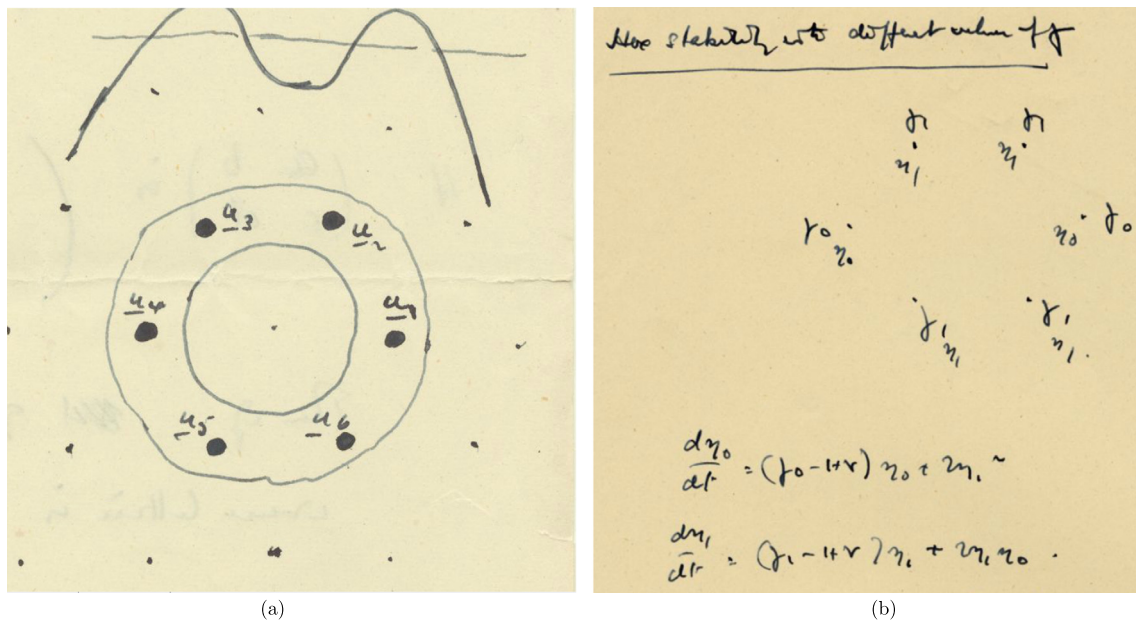 u₃
u₂
u₄
u₁
u₅
u₆
(a)
Hex stability with different values of γ
γ₁ γ₁
η₁ η₁
γ₀ η₀ η₀ γ₀
γ₁ η₁ γ₁ η₁
dη₀/dt = (γ₀ - 1 + γ) η₀ + 2η₁²
dη₁/dt = (γ₁ - 1 + γ) η₁ + 2η₁η₀
(b)